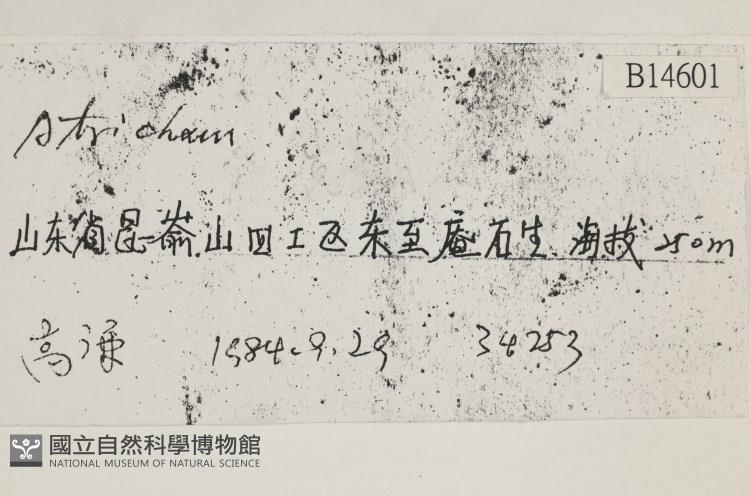 B14601
Atrichum
山东省昆嵛山四工区东至庵石生.海拔250m
高谦 1984.9.29 34253
國立自然科學博物館
NATIONAL MUSEUM OF NATURAL SCIENCE